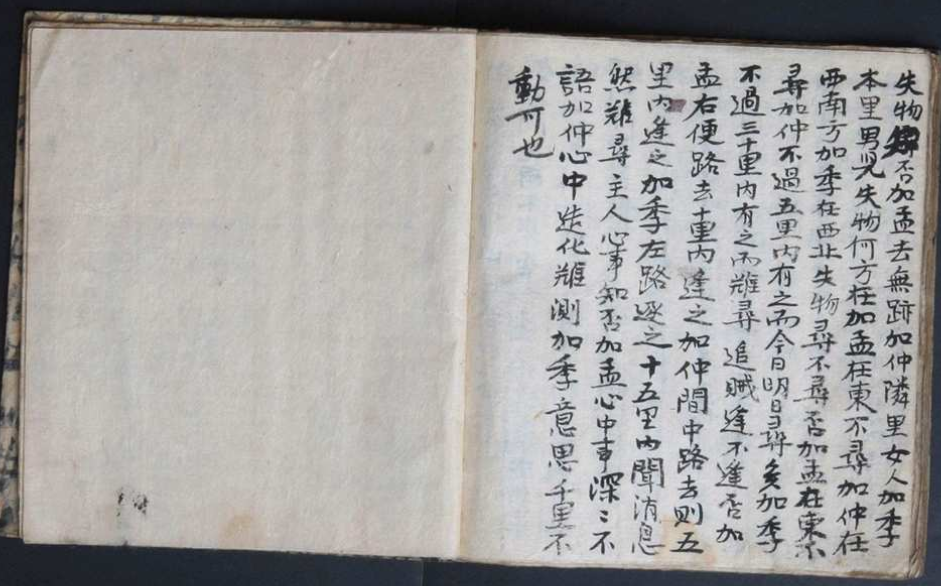 失物知否加孟去無跡加仲隣里女人加季
本里男児失物何方在加孟在東不尋加仲在
西南方加季在西北失物尋不尋否加孟在東不
尋加仲不過五里內有之而今日明日尋矣加季
不過三十里內有之而難尋追贼逢不逢否加
孟右便路去十里內逢之加仲間中路去則五
里內逢之加季左路逐之十五里內聞消息
然難尋主人心事知否加孟心中事深〻不
語加仲心中造化難測加季意思千里不
動可也